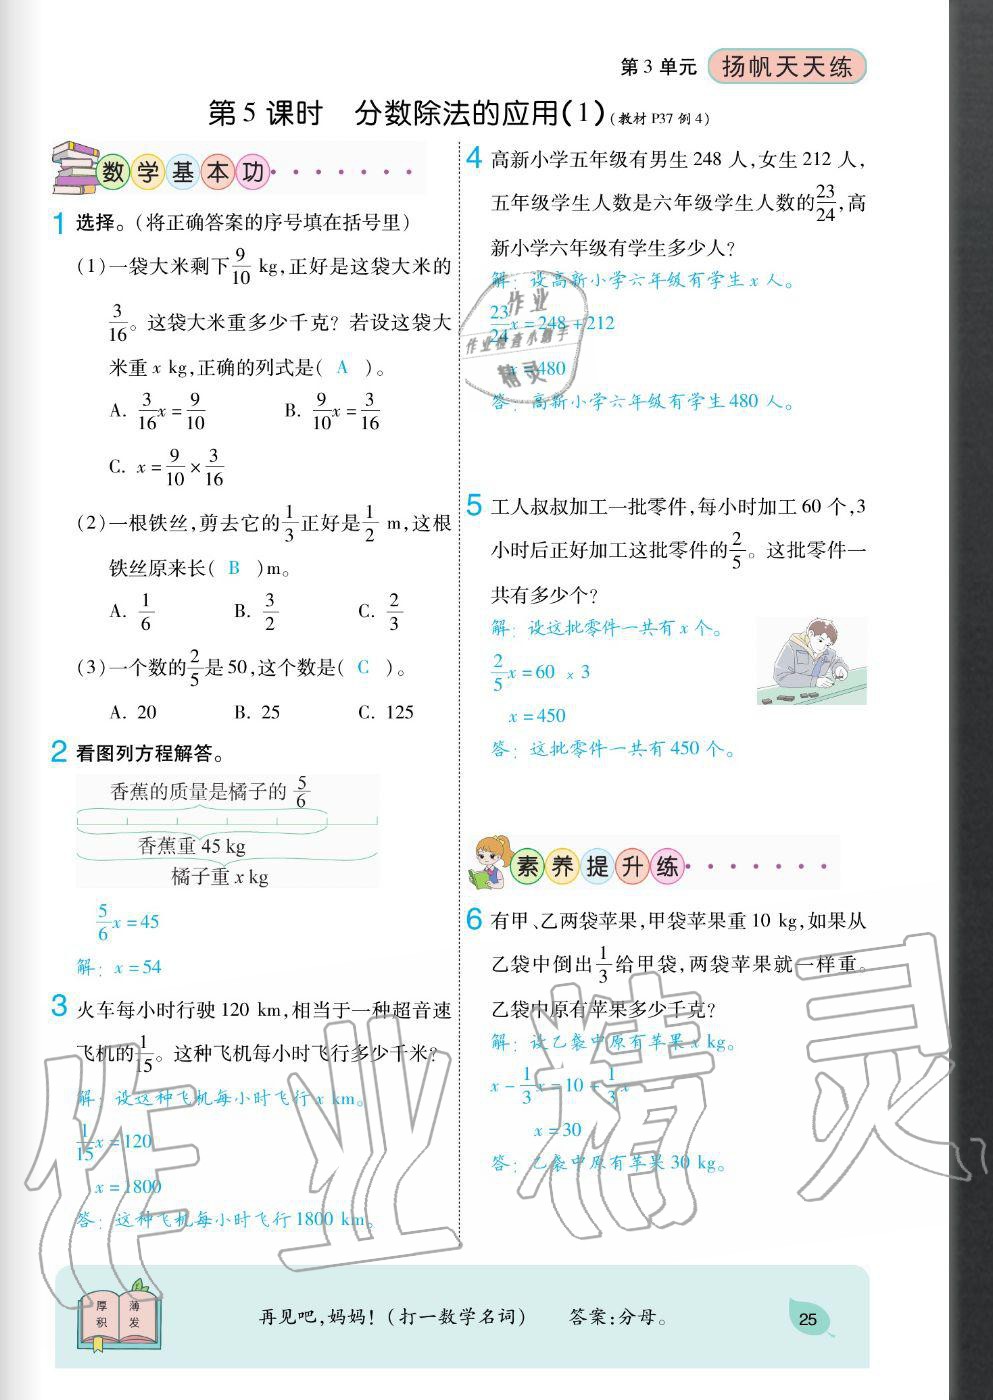 第3单元 扬帆天天练
第5课时 分数除法的应用(1)(教材P37例4)
数学基本功
1 选择。(将正确答案的序号填在括号里)
(1)一袋大米剩下9/10 kg,正好是这袋大米的
3/16。这袋大米重多少千克?若设这袋大
米重x kg,正确的列式是( A )。
A. 3/16x=9/10 B. 9/10x=3/16
C. x=9/10×3/16
(2)一根铁丝,剪去它的1/3正好是1/2 m,这根
铁丝原来长( B )m。
A. 1/6 B. 3/2 C. 2/3
(3)一个数的2/5是50,这个数是( C )。
A. 20 B. 25 C. 125
2 看图列方程解答。
香蕉的质量是橘子的5/6
香蕉重45 kg
橘子重x kg
5/6x=45
解:x=54
3 火车每小时行驶120 km,相当于一种超音速
飞机的1/15。这种飞机每小时飞行多少千米?
解:设这种飞机每小时飞行x km。
1/15x=120
x=1800
答:这种飞机每小时飞行1800 km。
4 高新小学五年级有男生248人,女生212人,
五年级学生人数是六年级学生人数的23/24,高
新小学六年级有学生多少人?
解:设高新小学六年级有学生x人。
23/24x=248+212
x=480
答:高新小学六年级有学生480人。
作业
作业检查小助手
精灵
5 工人叔叔加工一批零件,每小时加工60个,3
小时后正好加工这批零件的2/5。这批零件一
共有多少个?
解:设这批零件一共有x个。
2/5x=60×3
x=450
答:这批零件一共有450个。
素养提升练
6 有甲、乙两袋苹果,甲袋苹果重10 kg,如果从
乙袋中倒出1/3给甲袋,两袋苹果就一样重。
乙袋中原有苹果多少千克?
解:设乙袋中原有苹果x kg。
x-1/3x=10+1/3x
x=30
答:乙袋中原有苹果30 kg。
作业精灵
厚积薄发
再见吧,妈妈!(打一数学名词) 答案:分母。
25